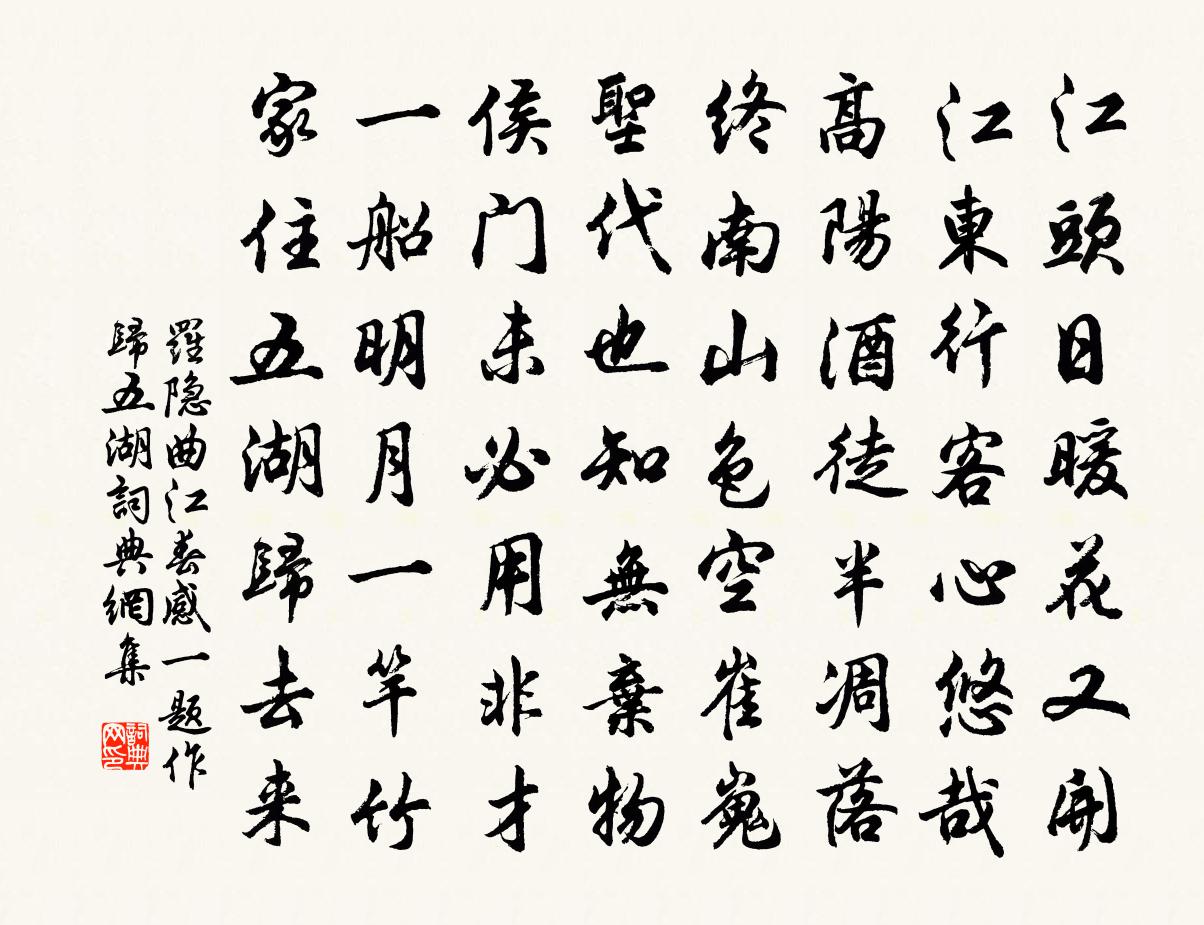 江頭日暖花又開
江東行客心悠哉
高陽酒徒半凋落
終南山色空崔嵬
聖代也知無棄物
侯门未必用非才
一船明月一竿竹
家住五湖歸去来
羅隐曲江春感一题作
歸五湖詞典網集
詞典网印